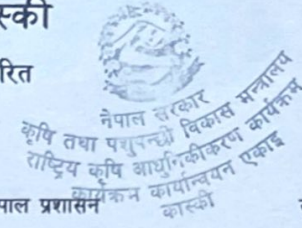 स्की
रित
नेपाल सरकार
कृषि तथा पशुपन्छी विकास मन्त्रालय
राष्ट्रिय कृषि आधुनिकीकरण कार्यक्रम
कार्यक्रम कार्यान्वयन एकाइ
पाल प्रशासन
कास्की